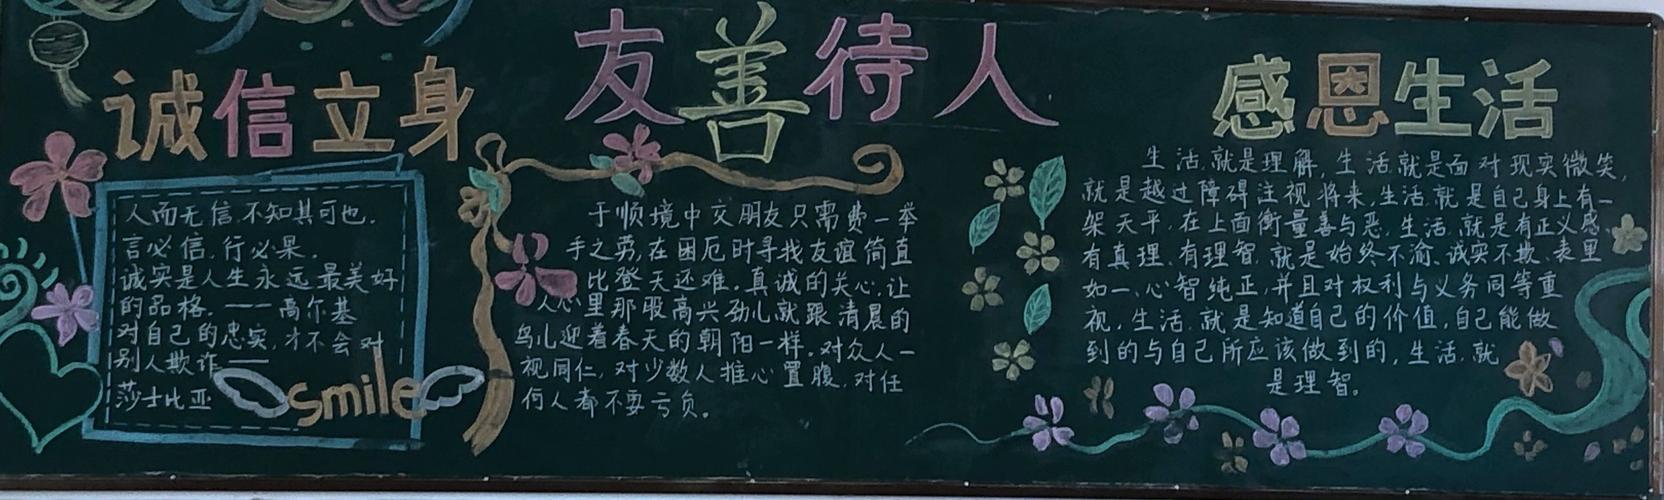 诚信立身
人而无信,不知其可也.
言必信,行必果.
诚实是人生永远最美好
的品格.——高尔基
对自己的忠实,才不会对
别人欺诈——
莎士比亚
smile
友善待人
于顺境中交朋友只需费一举
手之劳,在困厄时寻找友谊简直
比登天还难.真诚的关心,让
人心里那股高兴劲儿就跟清晨的
鸟儿迎着春天的朝阳一样.对众人一
视同仁,对少数人推心置腹,对任
何人都不要亏负。
感恩生活
生活,就是理解,生活,就是面对现实微笑,
就是越过障碍注视将来,生活,就是自己身上有一
架天平,在上面衡量善与恶,生活,就是有正义感、
有真理、有理智,就是始终不渝、诚实不欺、表里
如一、心智纯正,并且对权利与义务同等重
视,生活,就是知道自己的价值,自己能做
到的与自己所应该做到的,生活,就
是理智。